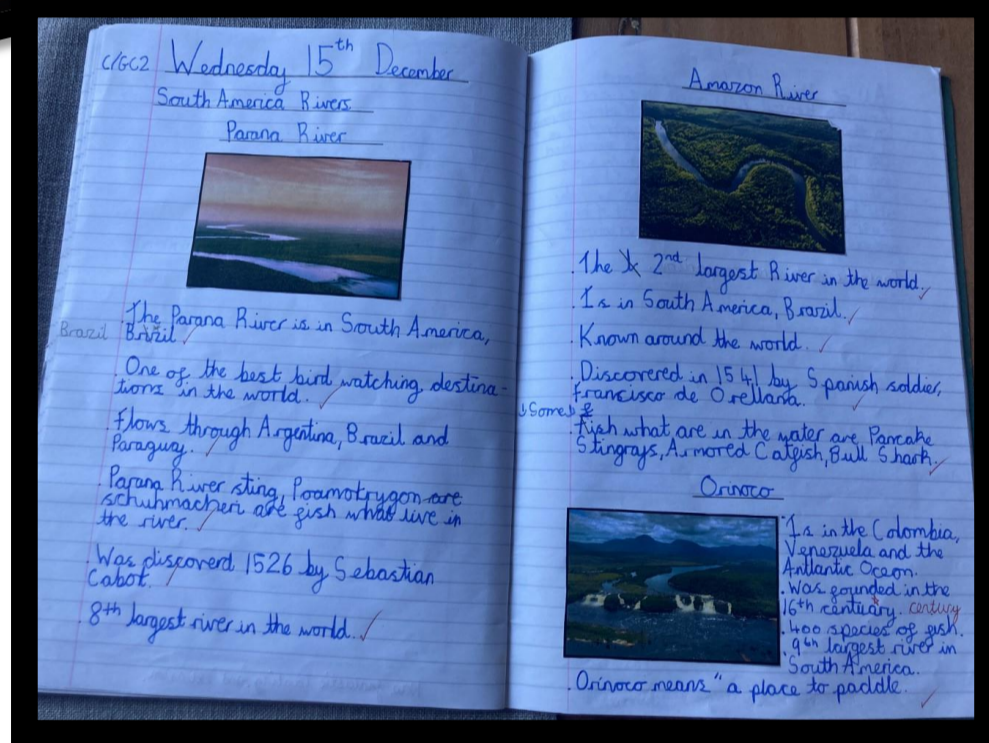 C/GC2 Wednesday 15th December
South America Rivers
Parana River
The Parana River is in South America,
Brazil Brazil
One of the best bird watching, destina-
tions in the world.
Flows through Argentina, Brazil and
Paraguay.
Parana River sting, Poamotrygon are
schuhmacheri are fish what live in
the river.
Was discoverd 1526 by Sebastian
Cabot.
8th largest river in the world.
Amazon River
The 2nd largest River in the world.
Is in South America, Brazil.
Known around the world.
Discovered in 1541 by Spanish soldier,
Francisco de Orellana.
Some
Fish what are in the water are Pancake
Stingrays, Armored Catfish, Bull Shark.
Orinoco
Is in the Colombia,
Venezuela and the
Antlantic Ocean.
Was founded in the
16th centuary. century
400 species of fish.
9th largest river in
South America.
Orinoco means "a place to paddle.